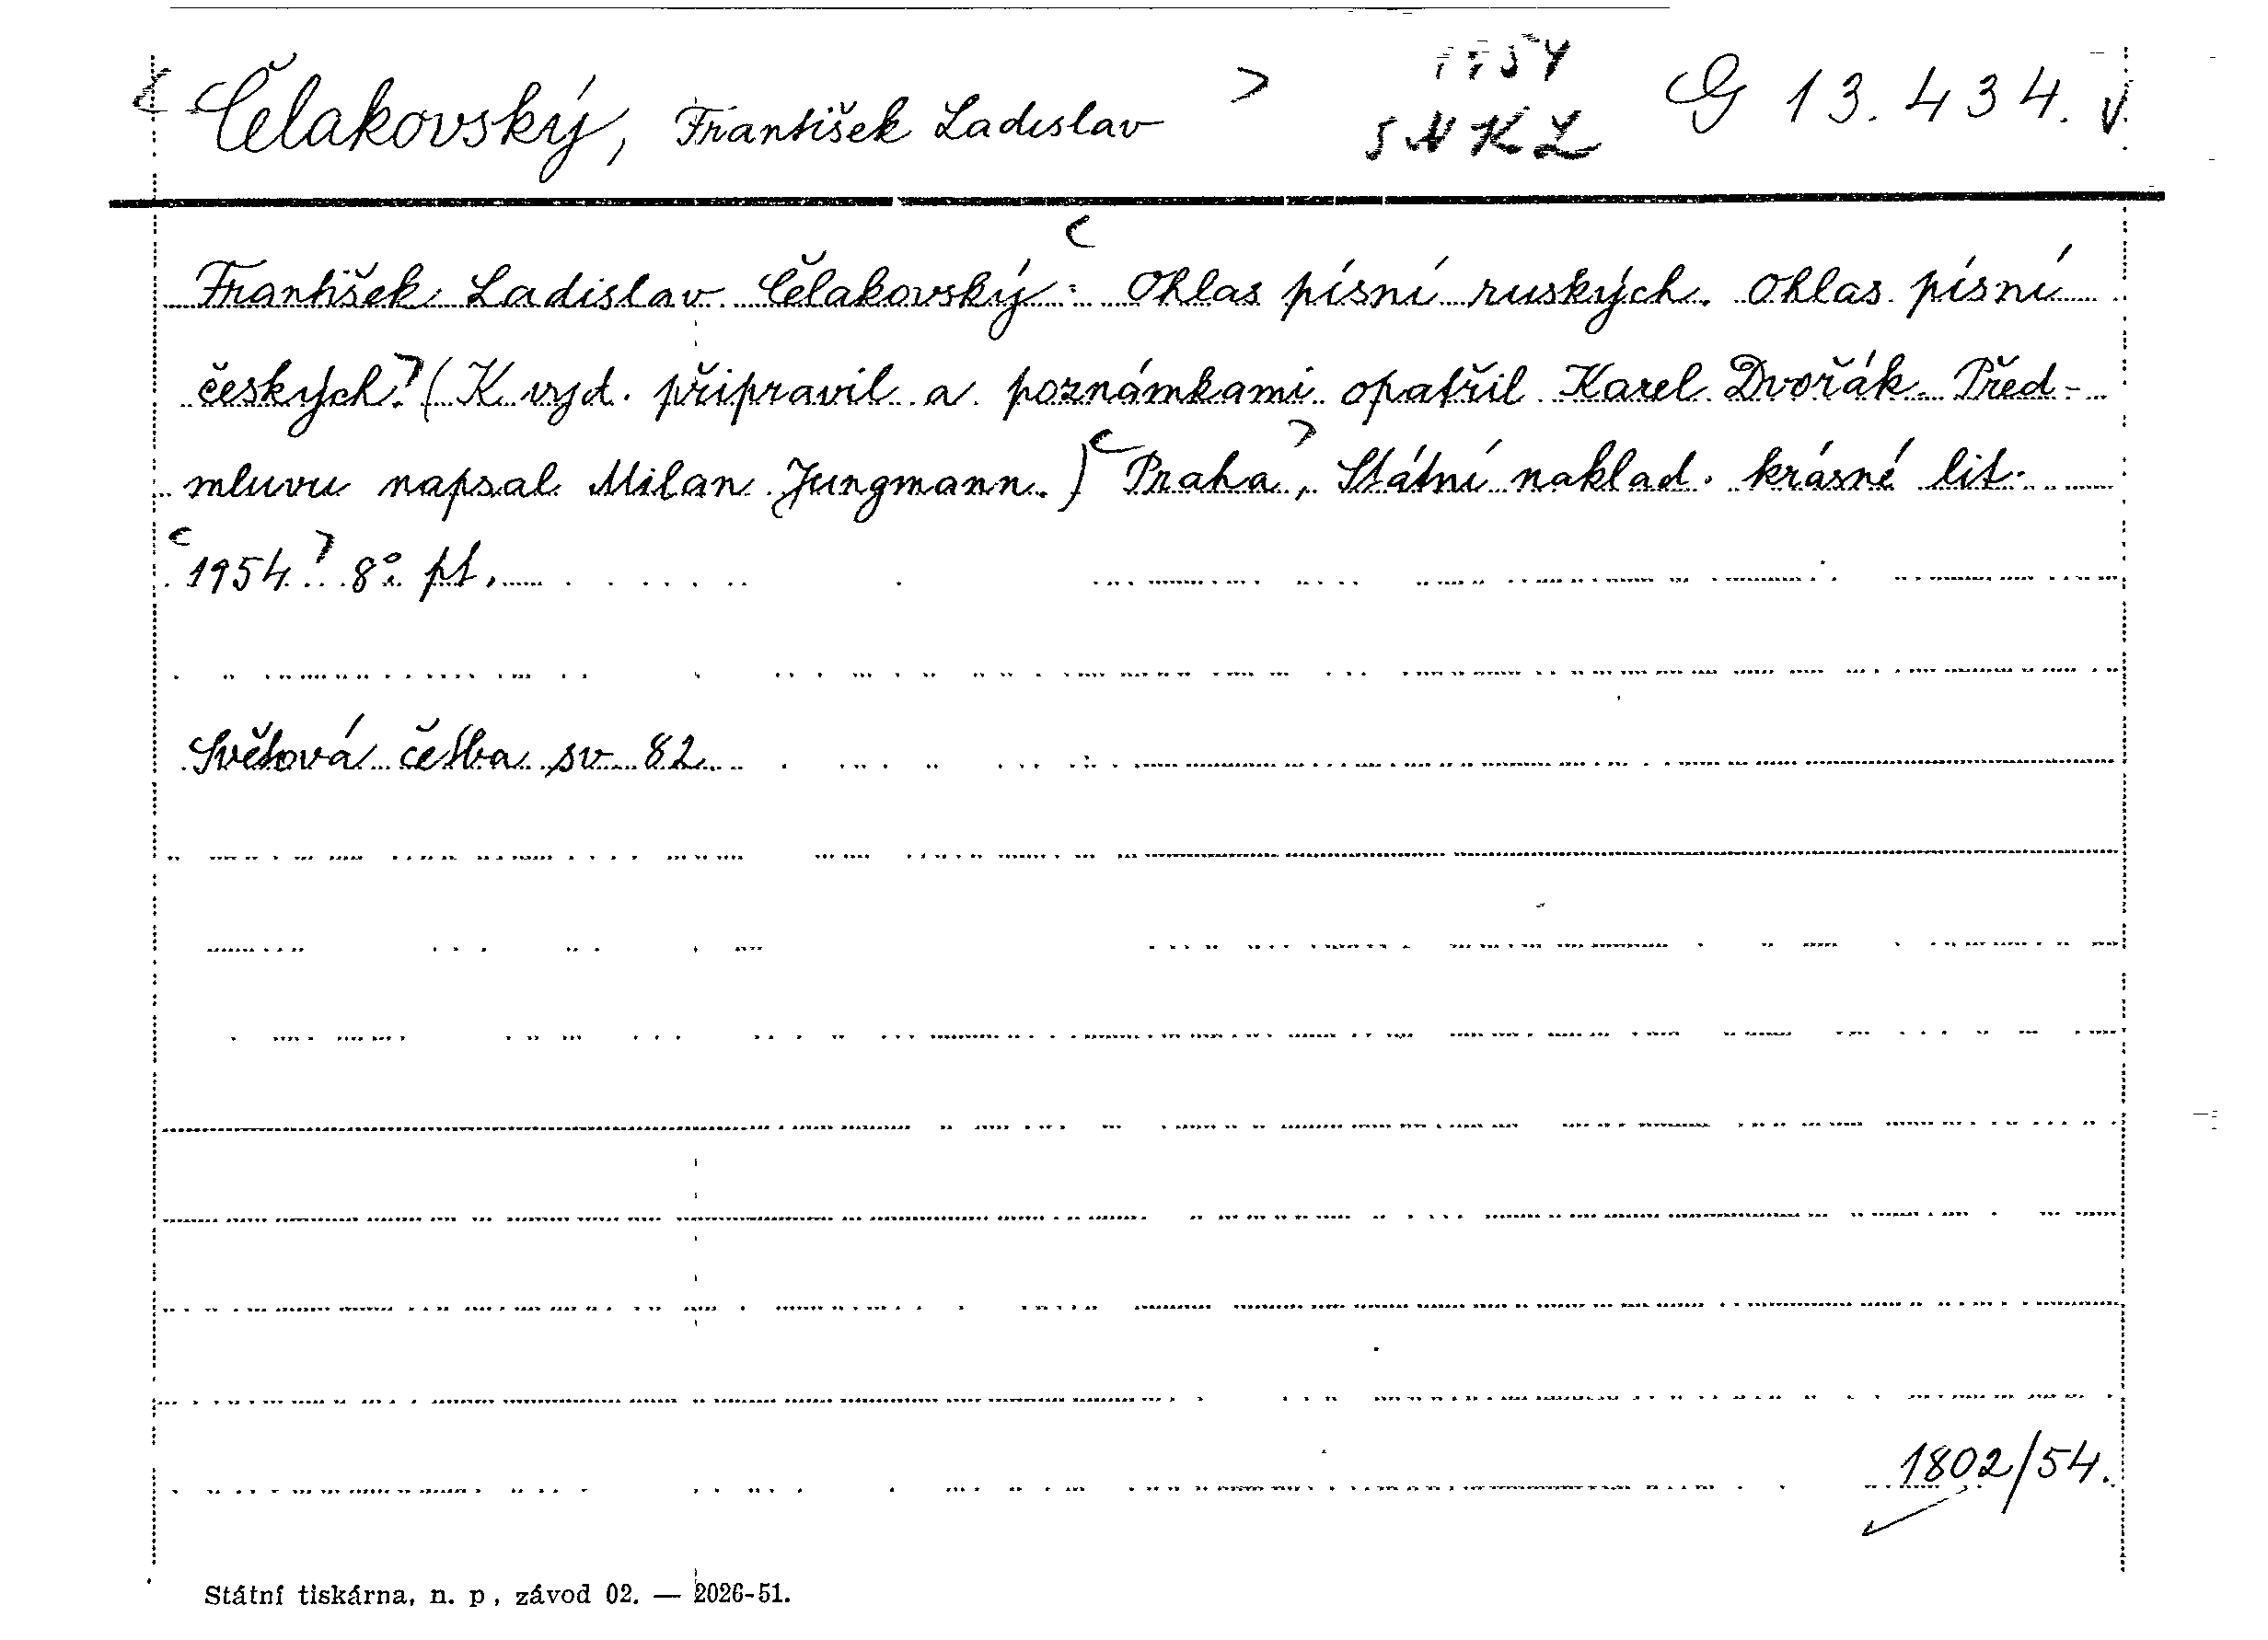 Čelakovský, František Ladislav
1954
SNKL
G 13.434.
František Ladislav Čelakovský: Ohlas písní ruských. Ohlas písní
českých. (K vyd. připravil a poznámkami opatřil Karel Dvořák. Před-
mluvu napsal Milan Jungmann.) Praha, Státní naklad. krásné lit.
1954. 8° pt.
Světová četba sv. 82.
1802/54.
Státní tiskárna, n. p., závod 02. — 2026-51.